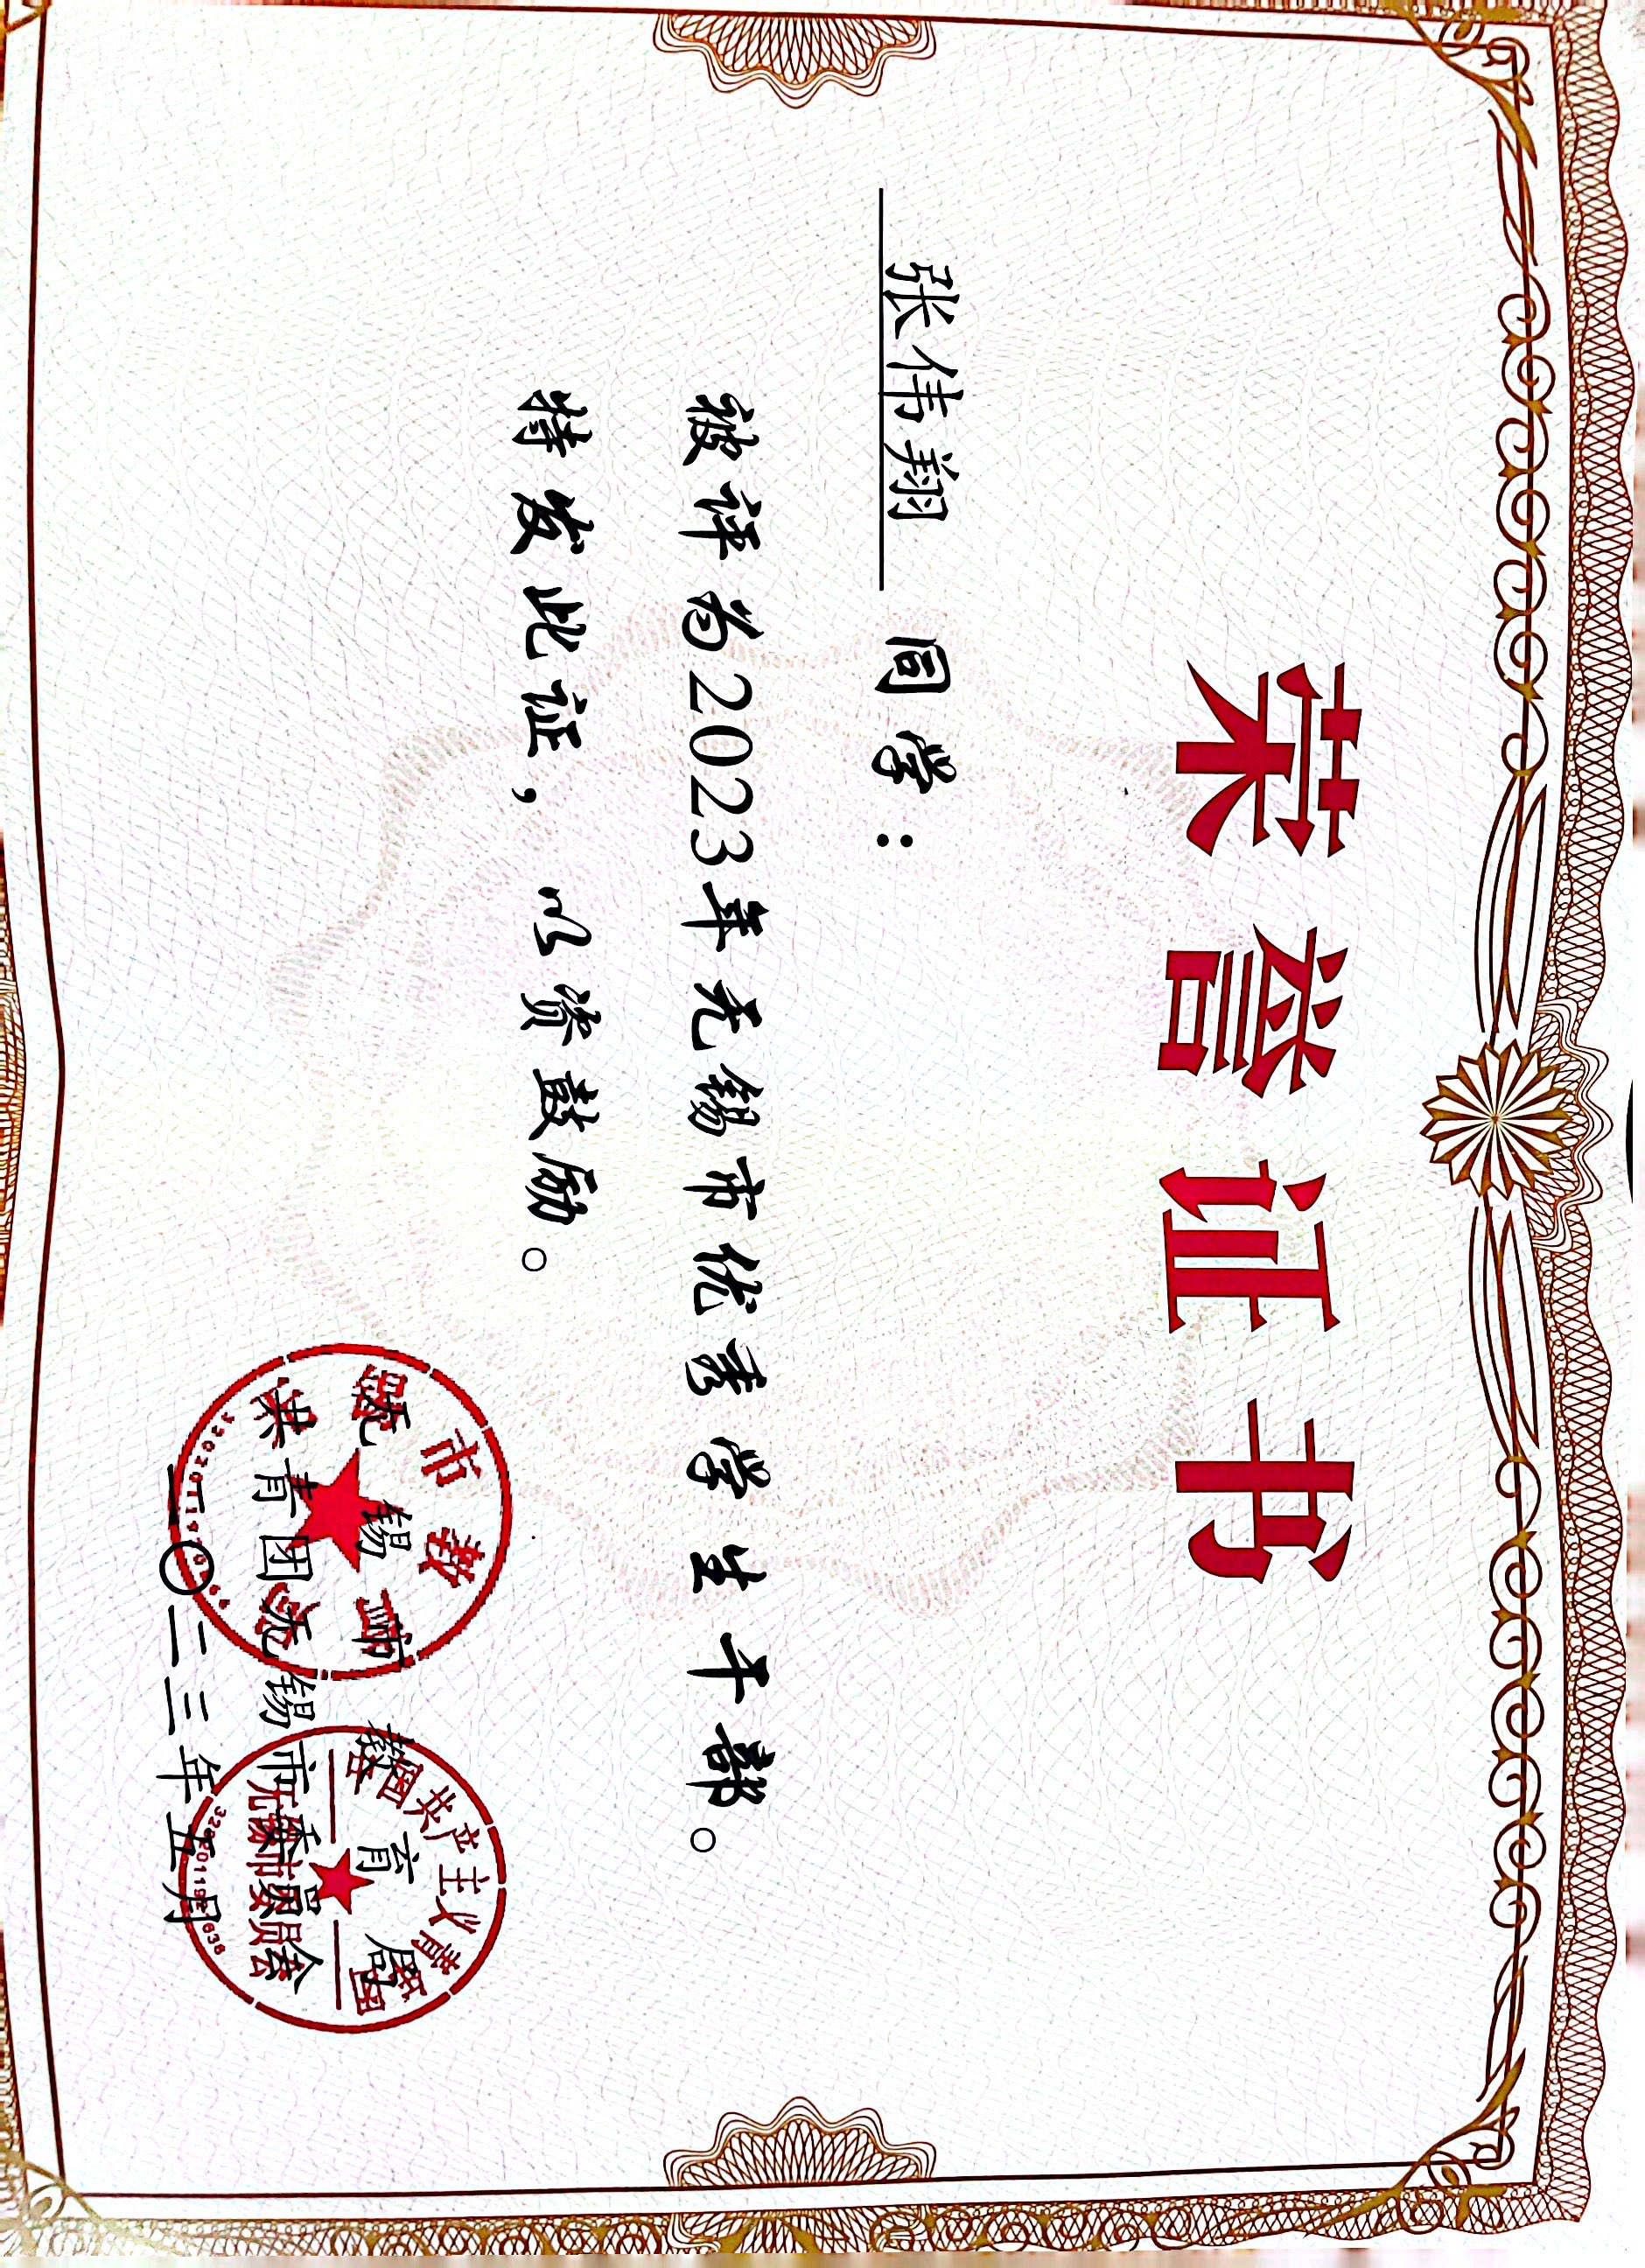 荣誉证书
张伟翔 同学：
被评为2023年无锡市优秀学生干部。
特发此证，以资鼓励。
无锡市教育局
共青团无锡市委员会
二〇二三年五月